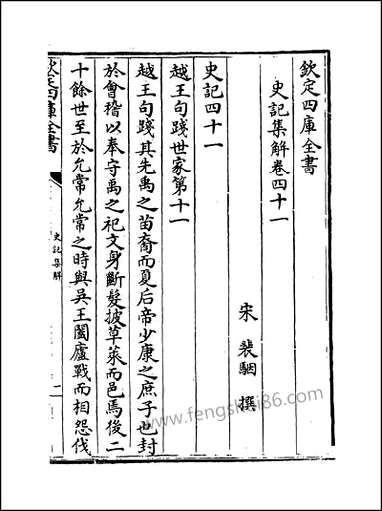 欽定四庫全書
史記集解卷四十一
宋 裴駰 撰
史記四十一
越王句踐世家第十一
越王句踐其先禹之苗裔而夏后帝少康之庶子也封
於會稽以奉守禹之祀文身斷髮披草萊而邑焉後二
十餘世至於允常允常之時與吳王闔廬戰而相怨伐
欽定四庫全書
史記集解
www.fengshui86.com